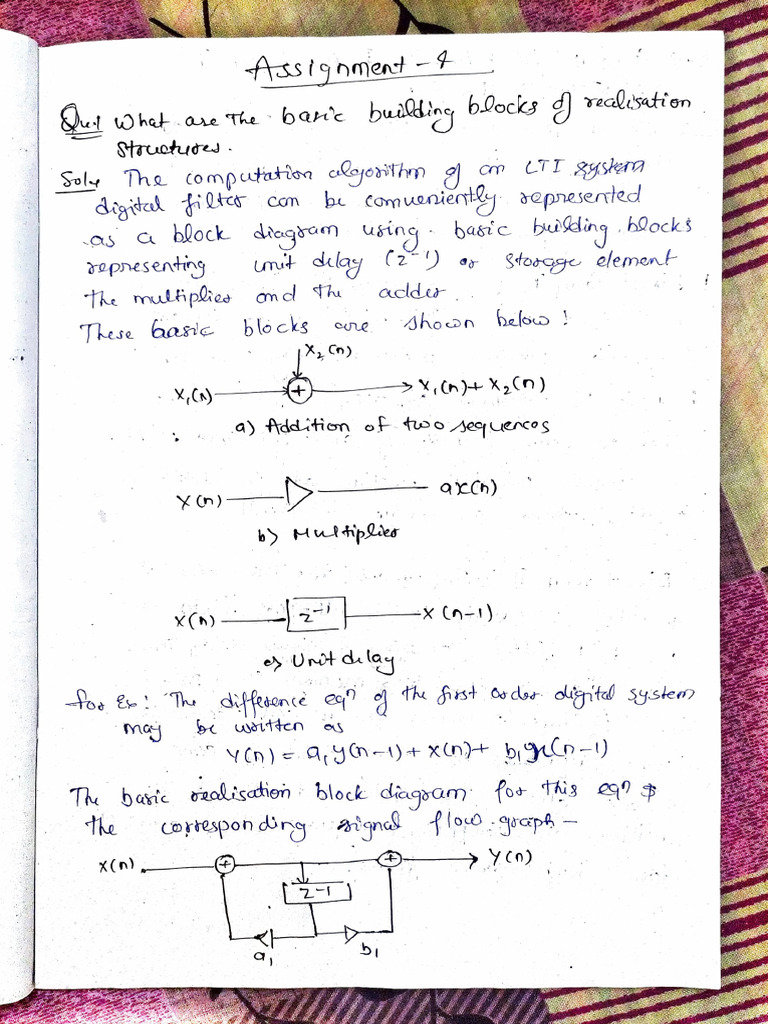 Assignment-4
Qu.1 What are The basic building blocks of realisation
structures.
Soln The computation algorithm of an LTI system
digital filter can be conveniently represented
as a block diagram using basic building blocks
representing unit delay (z⁻¹) or storage element
the multiplier and the adder.
These basic blocks are shown below!
X₂(n)
X₁(n) + X₁(n)+ X₂(n)
a) Addition of two sequences
X(n) ax(n)
b) Multiplier
X(n) z⁻¹ X(n-1)
c) Unit delay
for Ex! The difference eqn of the first order digital system
may be written as
Y(n) = a₁y(n-1)+x(n)+ b₁x(n-1)
The basic realisation block diagram for this eqn &
the corresponding signal flow graph -
X(n) + + Y(n)
z-1
a₁ b₁